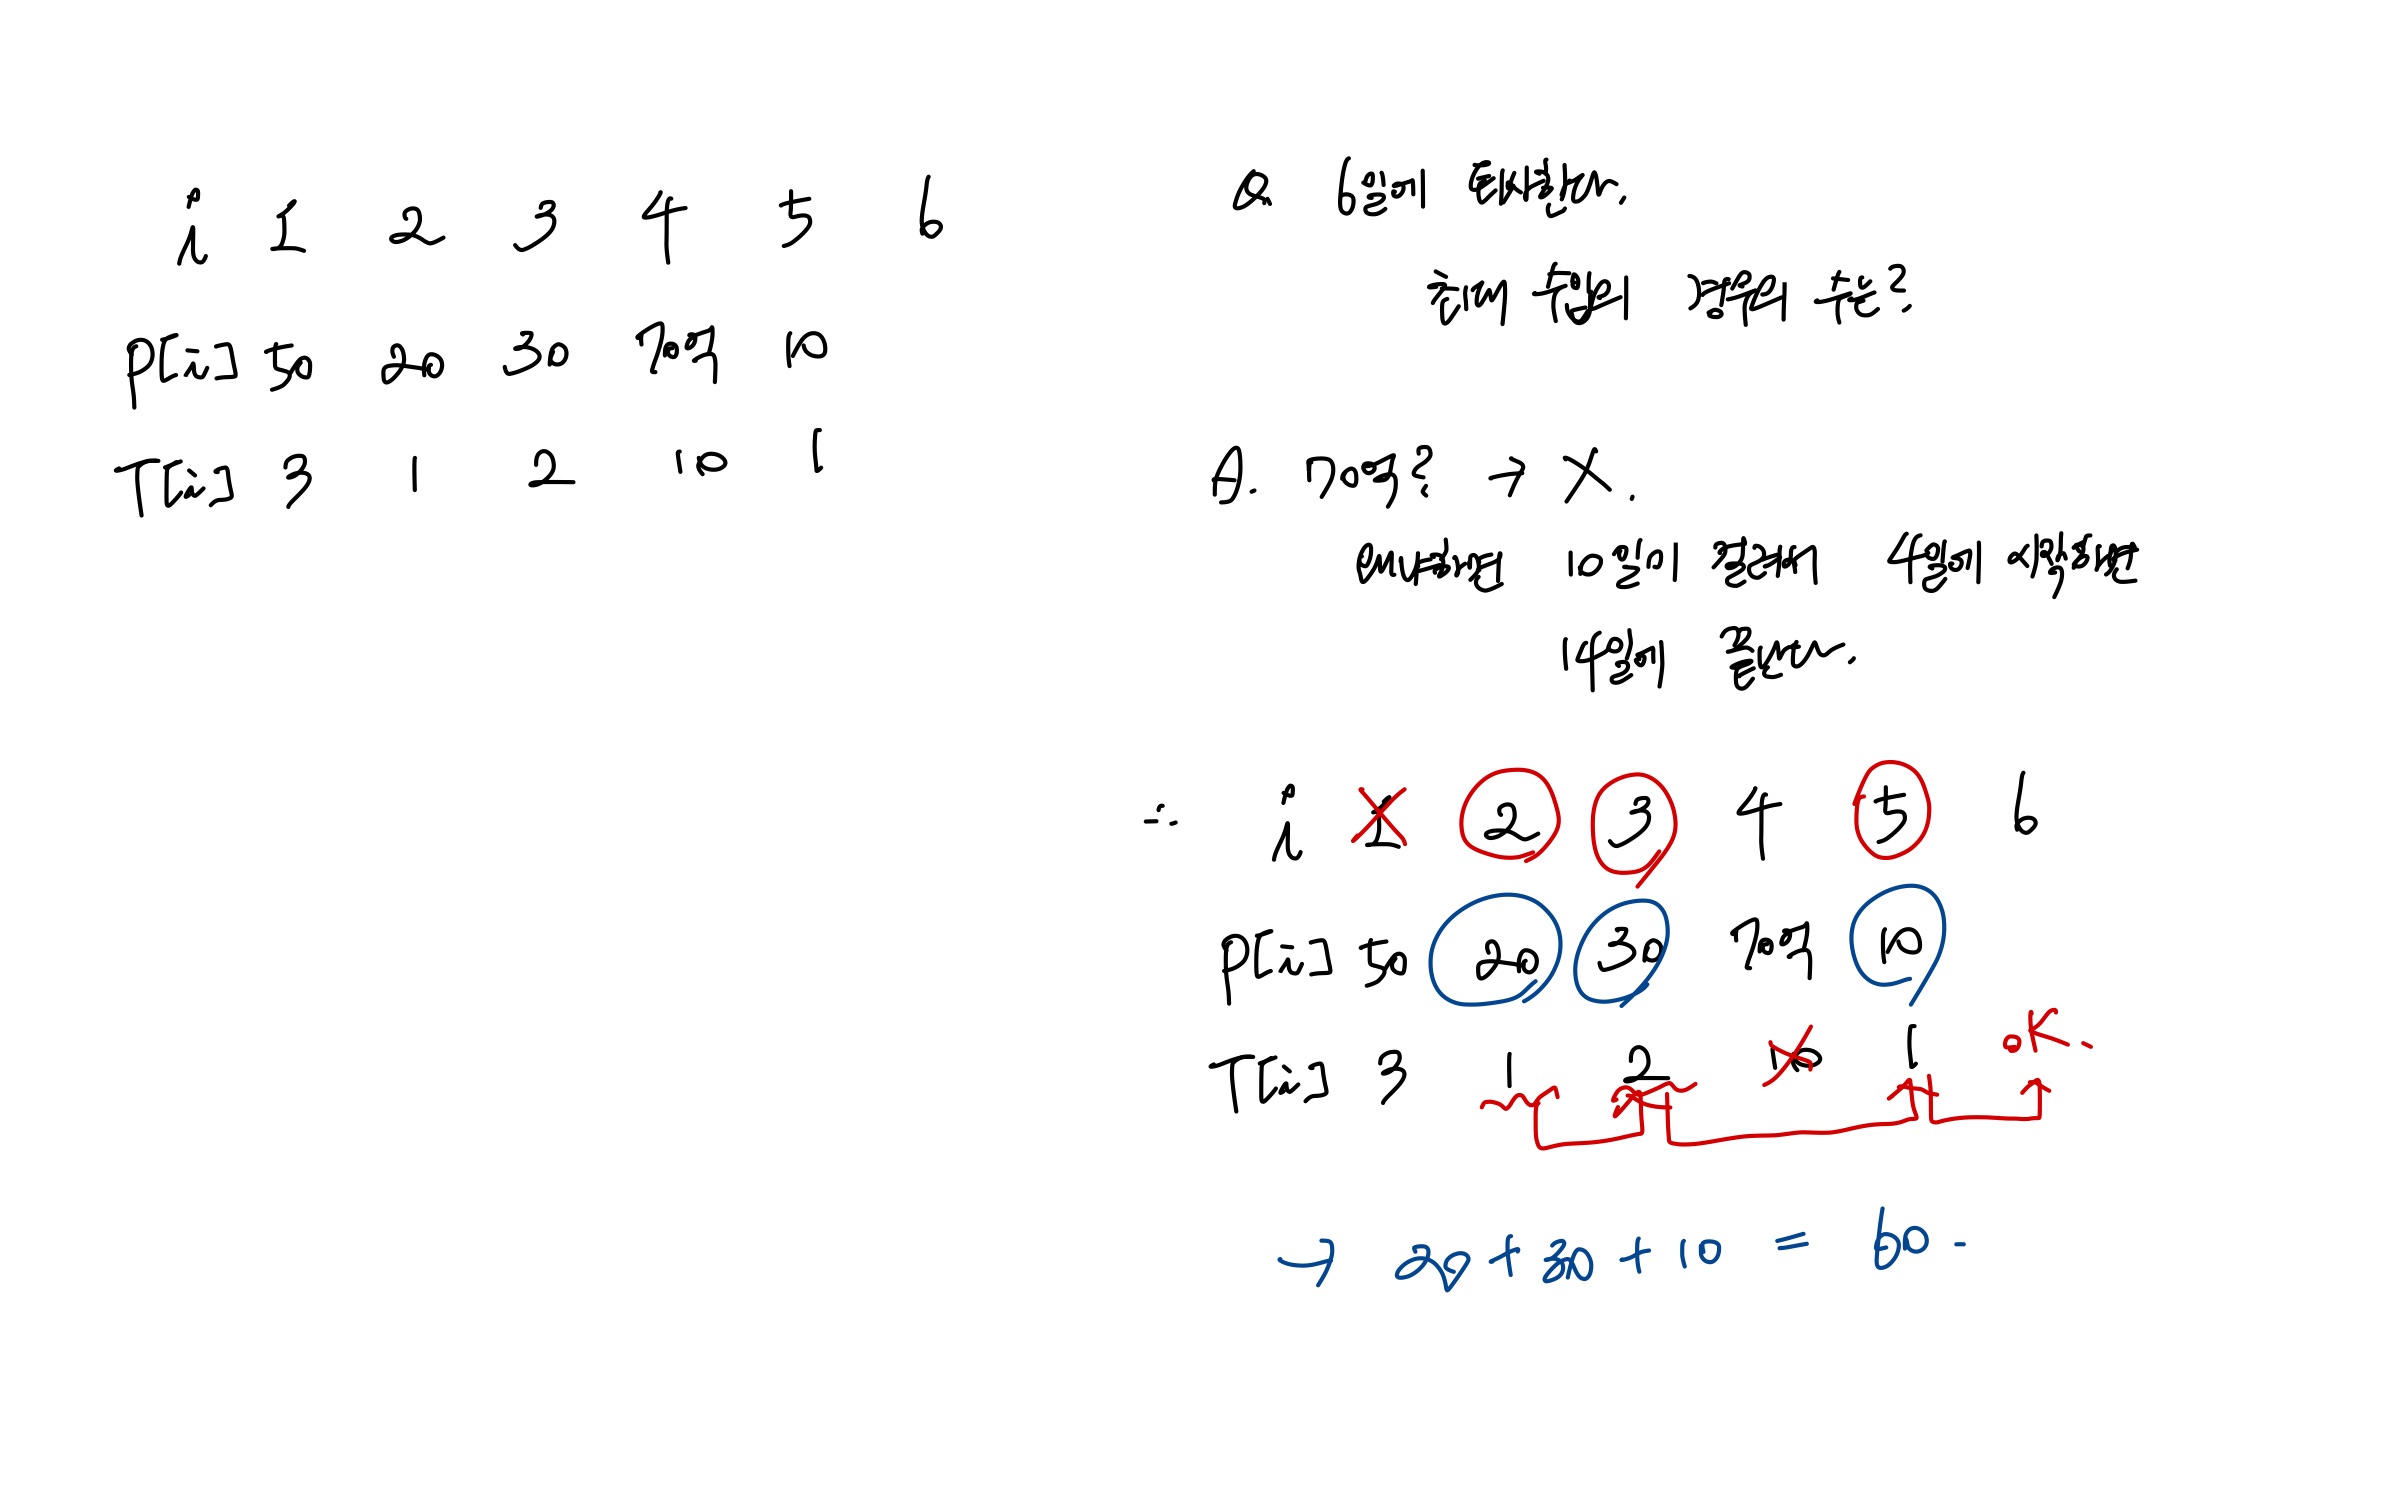 i 1 2 3 4 5 6
P[i] 50 20 30 70억 10
T[i] 3 1 2 10 1
Q 6일에 퇴사한다.
현재 취업의 경우의 수는?
A. 70억? → X.
왜냐하면 10일이 걸려서 4일에 시작하면
14일에 끝난다.
∴ i 1 2 3 4 5 6
P[i] 50 20 30 70억 10
T[i] 3 1 2 10 1 OK.
→ 20 + 30 + 10 = 60.